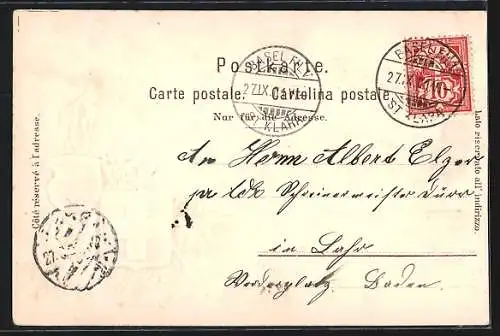 Postkarte.
Carte postale. Cartolina postale
Nur für die Adresse.
Côté réservé à l'adresse.
Lato riservato all' indirizzo.
BASEL
27.IX.
ST. KLARA
BASEL
27.IX.
ST. KLARA
10
27
An Herrn Albert Elger
Schreinermeister Dürr
in Lahr
Baden.